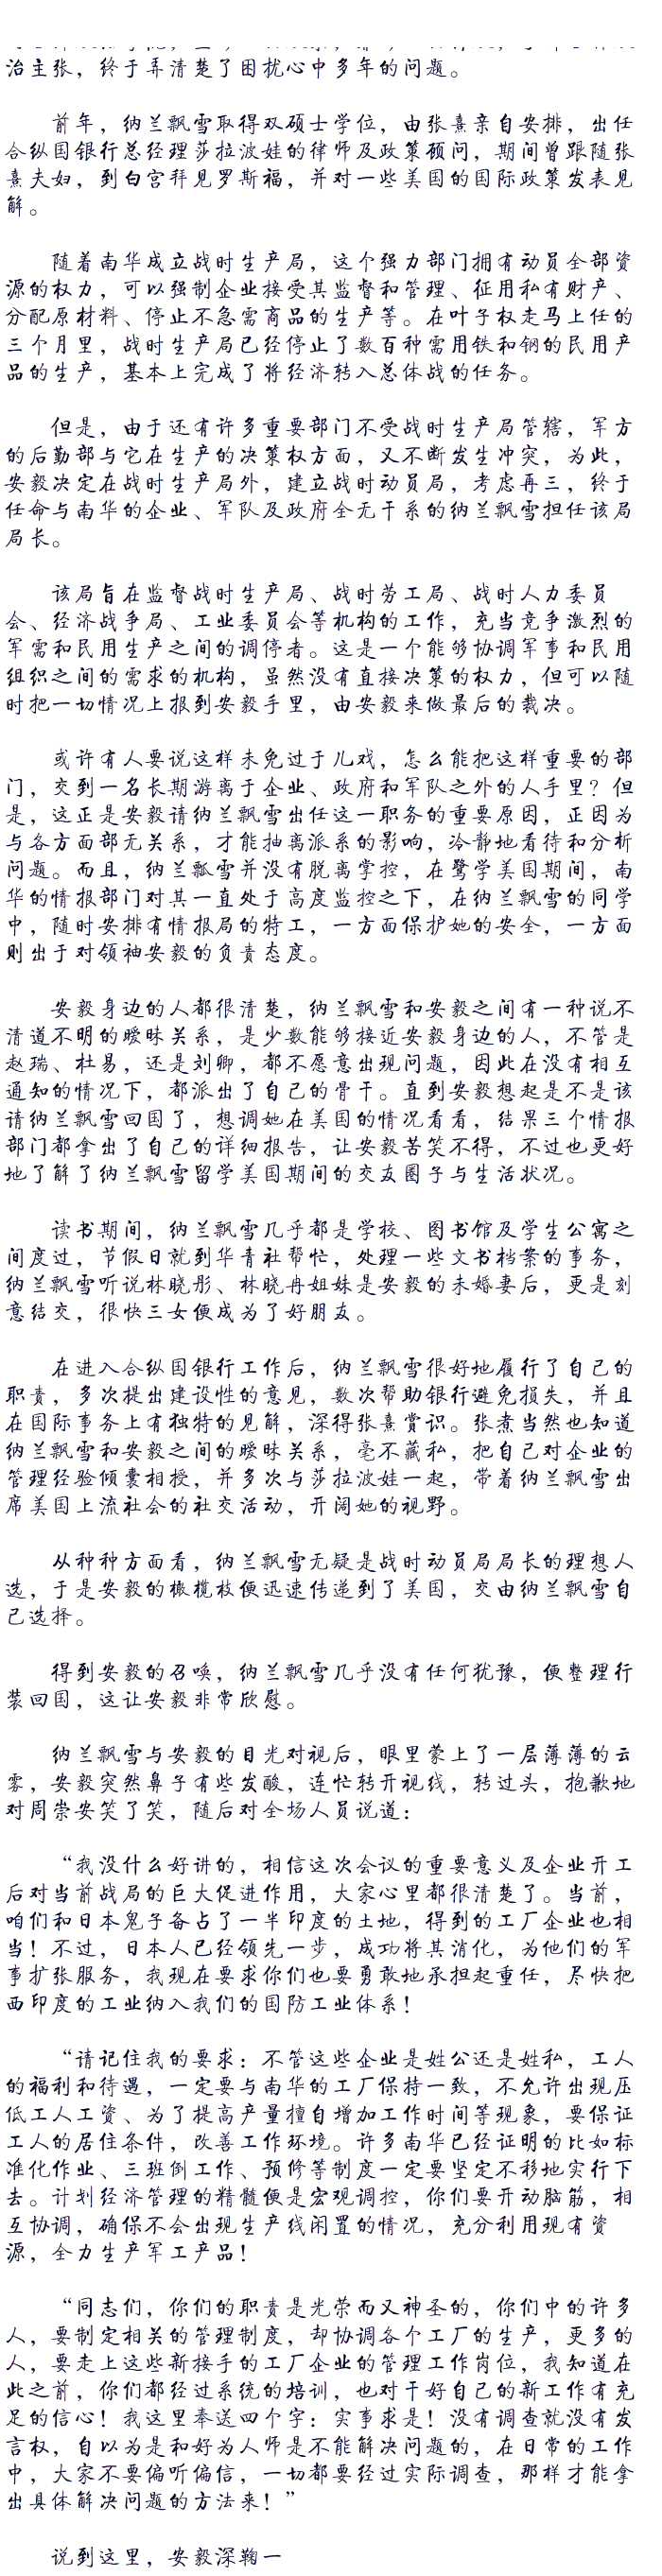 治主张，终于弄清楚了困扰心中多年的问题。
前年，纳兰飘雪取得双硕士学位，由张熹亲自安排，出任
合纵国银行总经理莎拉波娃的律师及政策顾问，期间曾跟随张
熹夫妇，到白宫拜见罗斯福，并对一些美国的国际政策发表见
解。
随着南华成立战时生产局，这个强力部门拥有动员全部资
源的权力，可以强制企业接受其监督和管理、征用私有财产、
分配原材料、停止不急需商品的生产等。在叶子权走马上任的
三个月里，战时生产局已经停止了数百种需用铁和钢的民用产
品的生产，基本上完成了将经济转入总体战的任务。
但是，由于还有许多重要部门不受战时生产局管辖，军方
的后勤部与它在生产的决策权方面，又不断发生冲突，为此，
安毅决定在战时生产局外，建立战时动员局，考虑再三，终于
任命与南华的企业、军队及政府全无干系的纳兰飘雪担任该局
局长。
该局旨在监督战时生产局、战时劳工局、战时人力委员
会、经济战争局、工业委员会等机构的工作，充当竞争激烈的
军需和民用生产之间的调停者。这是一个能够协调军事和民用
组织之间的需求的机构，虽然没有直接决策的权力，但可以随
时把一切情况上报到安毅手里，由安毅来做最后的裁决。
或许有人要说这样未免过于儿戏，怎么能把这样重要的部
门，交到一名长期游离于企业、政府和军队之外的人手里？但
是，这正是安毅请纳兰飘雪出任这一职务的重要原因，正因为
与各方面部无关系，才能抽离派系的影响，冷静地看待和分析
问题。而且，纳兰瓢雪并没有脱离掌控，在鹭学美国期间，南
华的情报部门对其一直处于高度监控之下，在纳兰飘雪的同学
中，随时安排有情报局的特工，一方面保护她的安全，一方面
则出于对领袖安毅的负责态度。
安毅身边的人都很清楚，纳兰飘雪和安毅之间有一种说不
清道不明的暧昧关系，是少数能够接近安毅身边的人，不管是
赵瑞、杜易，还是刘卿，都不愿意出现问题，因此在没有相互
通知的情况下，都派出了自己的骨干。直到安毅想起是不是该
请纳兰飘雪回国了，想调她在美国的情况看看，结果三个情报
部门都拿出了自己的详细报告，让安毅苦笑不得，不过也更好
地了解了纳兰飘雪留学美国期间的交友圈子与生活状况。
读书期间，纳兰飘雪几乎都是学校、图书馆及学生公寓之
间度过，节假日就到华青社帮忙，处理一些文书档案的事务，
纳兰飘雪听说林晓彤、林晓冉姐妹是安毅的未婚妻后，更是刻
意结交，很快三女便成为了好朋友。
在进入合纵国银行工作后，纳兰飘雪很好地履行了自己的
职责，多次提出建设性的意见，数次帮助银行避免损失，并且
在国际事务上有独特的见解，深得张熹赏识。张煮当然也知道
纳兰飘雪和安毅之间的暧昧关系，毫不藏私，把自己对企业的
管理经验倾囊相授，并多次与莎拉波娃一起，带着纳兰飘雪出
席美国上流社会的社交活动，开阔她的视野。
从种种方面看，纳兰飘雪无疑是战时动员局局长的理想人
选，于是安毅的橄榄枝便迅速传递到了美国，交由纳兰飘雪自
己选择。
得到安毅的召唤，纳兰飘雪几乎没有任何犹豫，便整理行
装回国，这让安毅非常欣慰。
纳兰飘雪与安毅的目光对视后，眼里蒙上了一层薄薄的云
雾，安毅突然鼻子有些发酸，连忙转开视线，转过头，抱歉地
对周崇安笑了笑，随后对全场人员说道：
“我没什么好讲的，相信这次会议的重要意义及企业开工
后对当前战局的巨大促进作用，大家心里都很清楚了。当前，
咱们和日本鬼子备占了一半印度的土地，得到的工厂企业也相
当！不过，日本人已经领先一步，成功将其消化，为他们的军
事扩张服务，我现在要求你们也要勇敢地承担起重任，尽快把
西印度的工业纳入我们的国防工业体系！
“请记住我的要求：不管这些企业是姓公还是姓私，工人
的福利和待遇，一定要与南华的工厂保持一致，不允许出现压
低工人工资、为了提高产量擅自增加工作时间等现象，要保证
工人的居住条件，改善工作环境。许多南华已经证明的比如标
准化作业、三班倒工作、预修等制度一定要坚定不移地实行下
去。计划经济管理的精髓便是宏观调控，你们要开动脑筋，相
互协调，确保不会出现生产线闲置的情况，充分利用现有资
源，全力生产军工产品！
“同志们，你们的职责是光荣而又神圣的，你们中的许多
人，要制定相关的管理制度，却协调各个工厂的生产，更多的
人，要走上这些新接手的工厂企业的管理工作岗位，我知道在
此之前，你们都经过系统的培训，也对干好自己的新工作有充
足的信心！我这里奉送四个字：实事求是！没有调查就没有发
言权，自以为是和好为人师是不能解决问题的，在日常的工作
中，大家不要偏听偏信，一切都要经过实际调查，那样才能拿
出具体解决问题的方法来！”
说到这里，安毅深鞠一